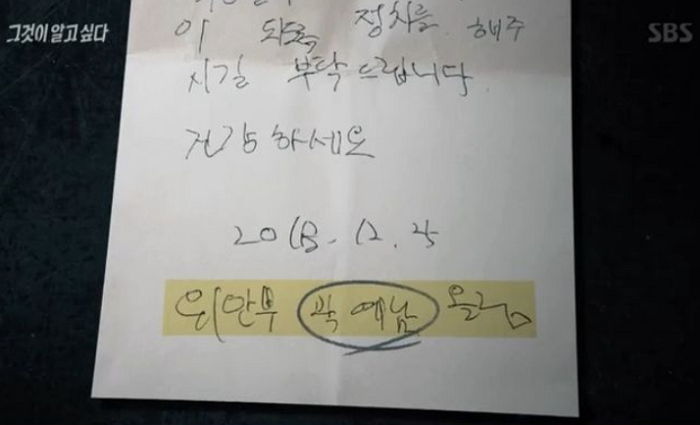 그것이 알고싶다
SBS
이 되도록 정치를 해주
시길 부탁드립니다
건강하세요
2018. 12. 25
위안부 곽예남 올림